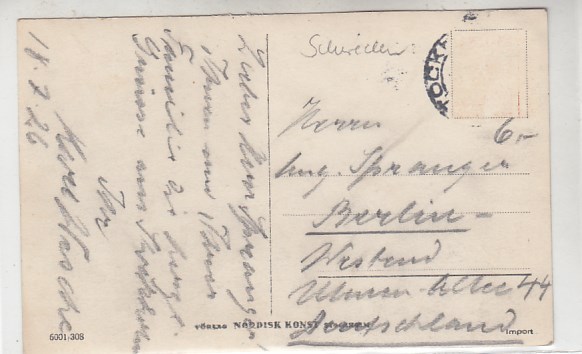 Lieber Herr Spranger
Ihnen und Ihrer
Familie die herzl.
Grüsse aus Stockholm
Ihr
Karl
18.7.26
Schweden:
STOCK
6.-
Herrn
Aug. Spranger
Berlin-
Westend
Ulmen Allee 44
Deutschland
NORDISK KONST
6001/308
Import